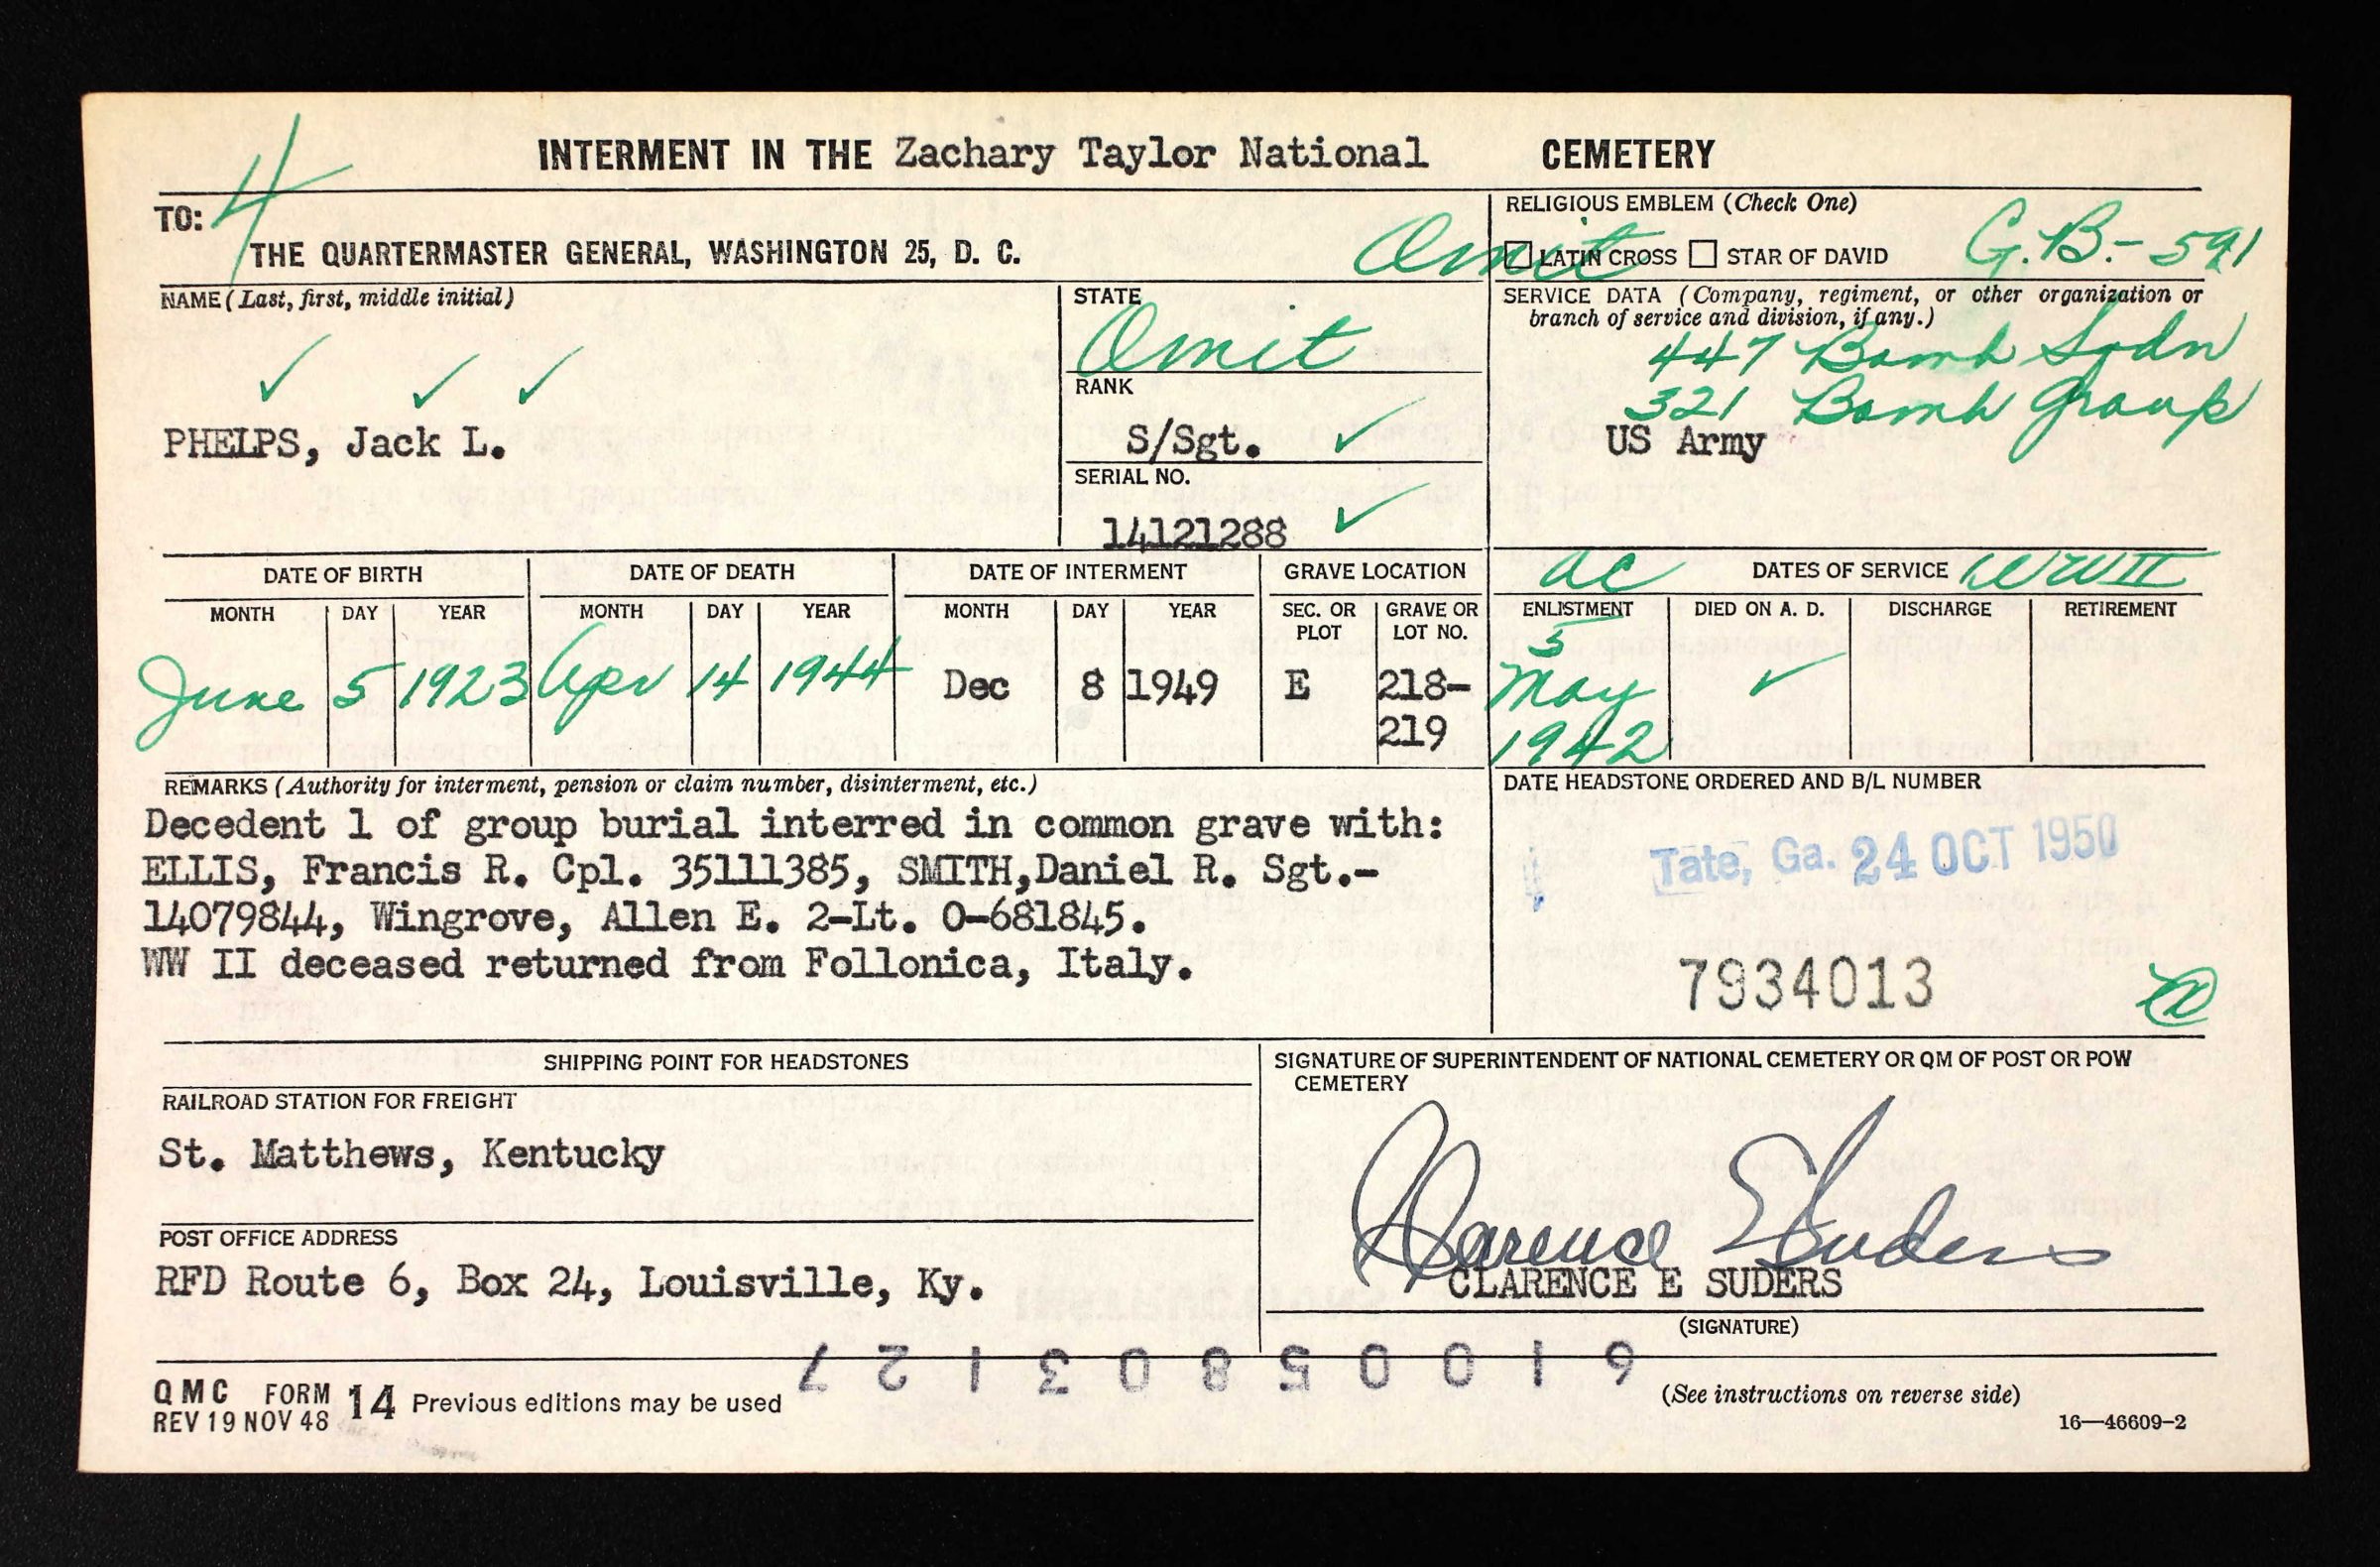 INTERMENT IN THE Zachary Taylor National CEMETERY
4
TO:
THE QUARTERMASTER GENERAL, WASHINGTON 25, D. C.
RELIGIOUS EMBLEM (Check One)
Omit
LATIN CROSS STAR OF DAVID
G.B.- 591
NAME (Last, first, middle initial)
✓ ✓ ✓
PHELPS, Jack L.
STATE
Omit
RANK
S/Sgt. ✓
SERIAL NO.
14121288 ✓
SERVICE DATA (Company, regiment, or other organization or
branch of service and division, if any.)
447 Bomb Sqdn
321 Bomb Group
US Army
DATE OF BIRTH
MONTH DAY YEAR
June 5 1923
DATE OF DEATH
MONTH DAY YEAR
Apr 14 1944
DATE OF INTERMENT
MONTH DAY YEAR
Dec 8 1949
GRAVE LOCATION
SEC. OR PLOT
E
GRAVE OR LOT NO.
218-
219
AC DATES OF SERVICE WWII
ENLISTMENT DIED ON A. D. DISCHARGE RETIREMENT
5
May ✓
1942
REMARKS (Authority for interment, pension or claim number, disinterment, etc.)
Decedent 1 of group burial interred in common grave with:
ELLIS, Francis R. Cpl. 35111385, SMITH,Daniel R. Sgt.-
14079844, Wingrove, Allen E. 2-Lt. O-681845.
WW II deceased returned from Follonica, Italy.
DATE HEADSTONE ORDERED AND B/L NUMBER
Tate, Ga. 24 OCT 1950
7934013
SHIPPING POINT FOR HEADSTONES
RAILROAD STATION FOR FREIGHT
St. Matthews, Kentucky
POST OFFICE ADDRESS
RFD Route 6, Box 24, Louisville, Ky.
SIGNATURE OF SUPERINTENDENT OF NATIONAL CEMETERY OR QM OF POST OR POW
CEMETERY
Clarence E Suders
CLARENCE E SUDERS
(SIGNATURE)
61005803127
QMC FORM 14 Previous editions may be used
REV 19 NOV 48
(See instructions on reverse side)
16—46609-2